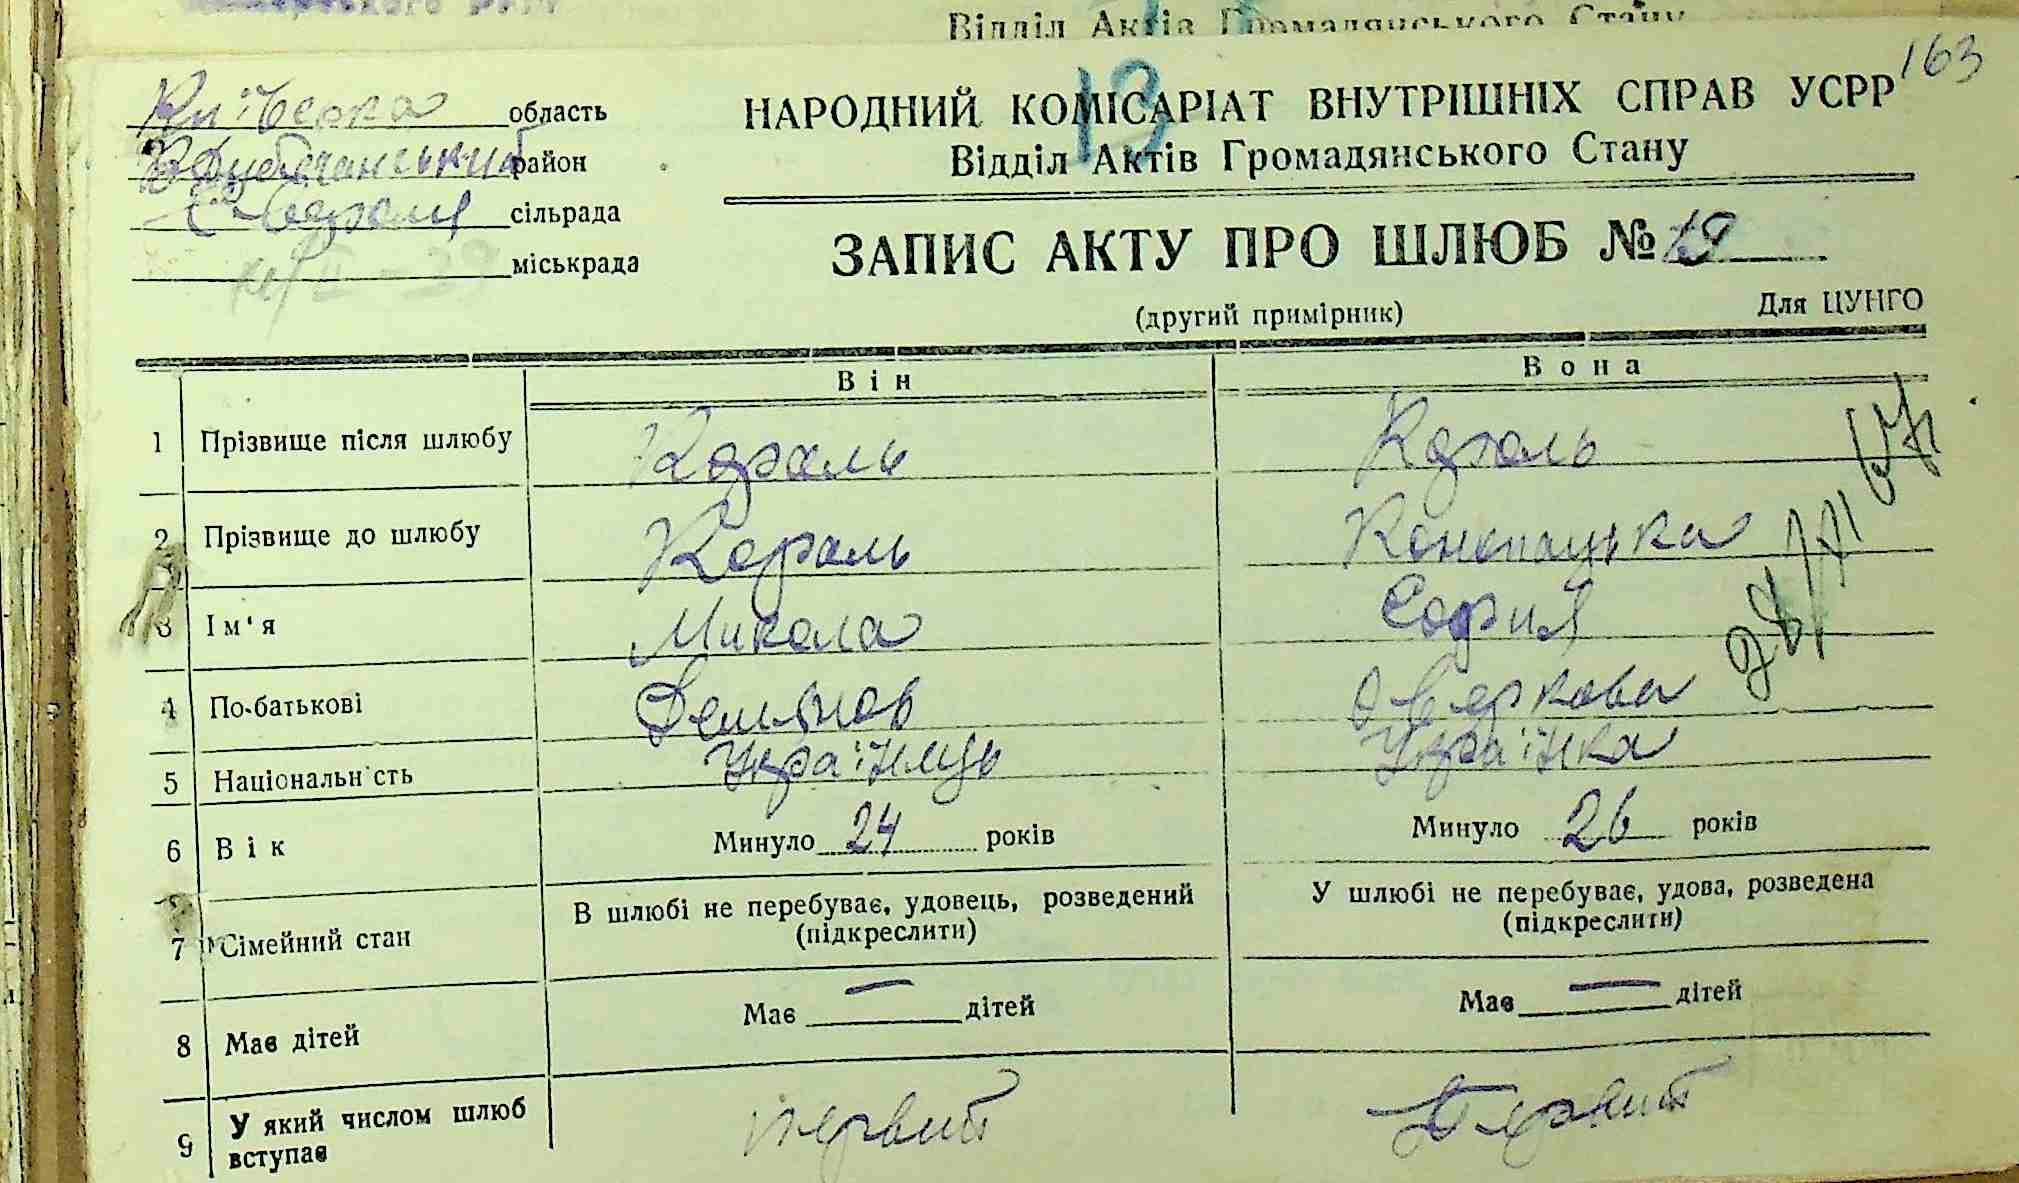 Відділ Актів Громадянського Стану
163
13
Київська область
район
сільрада
міськрада
НАРОДНИЙ КОМІСАРІАТ ВНУТРІШНІХ СПРАВ УСРР
Відділ Актів Громадянського Стану
ЗАПИС АКТУ ПРО ШЛЮБ № 19
(другий примірник) Для ЦУНГО
Він Вона
1 Прізвище після шлюбу Король Король
2 Прізвище до шлюбу Король Конопацька
3 Ім'я Микола София
4 По-батькові Демянов Оверкова
5 Національність Українець Українка
6 Вік Минуло 24 років Минуло 26 років
7 Сімейний стан В шлюбі не перебуває, удовець, розведений (підкреслити) У шлюбі не перебуває, удова, розведена (підкреслити)
8 Має дітей Має — дітей Має — дітей
9 У який числом шлюб вступає первий Первий